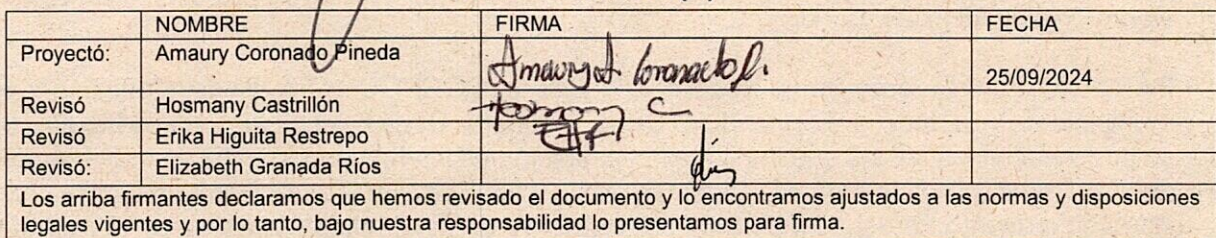 NOMBRE FIRMA FECHA
Proyectó: Amaury Coronado Pineda Amaury A. Coronado P. 25/09/2024
Revisó Hosmany Castrillón
Revisó Erika Higuita Restrepo
Revisó: Elizabeth Granada Ríos
Los arriba firmantes declaramos que hemos revisado el documento y lo encontramos ajustados a las normas y disposiciones
legales vigentes y por lo tanto, bajo nuestra responsabilidad lo presentamos para firma.